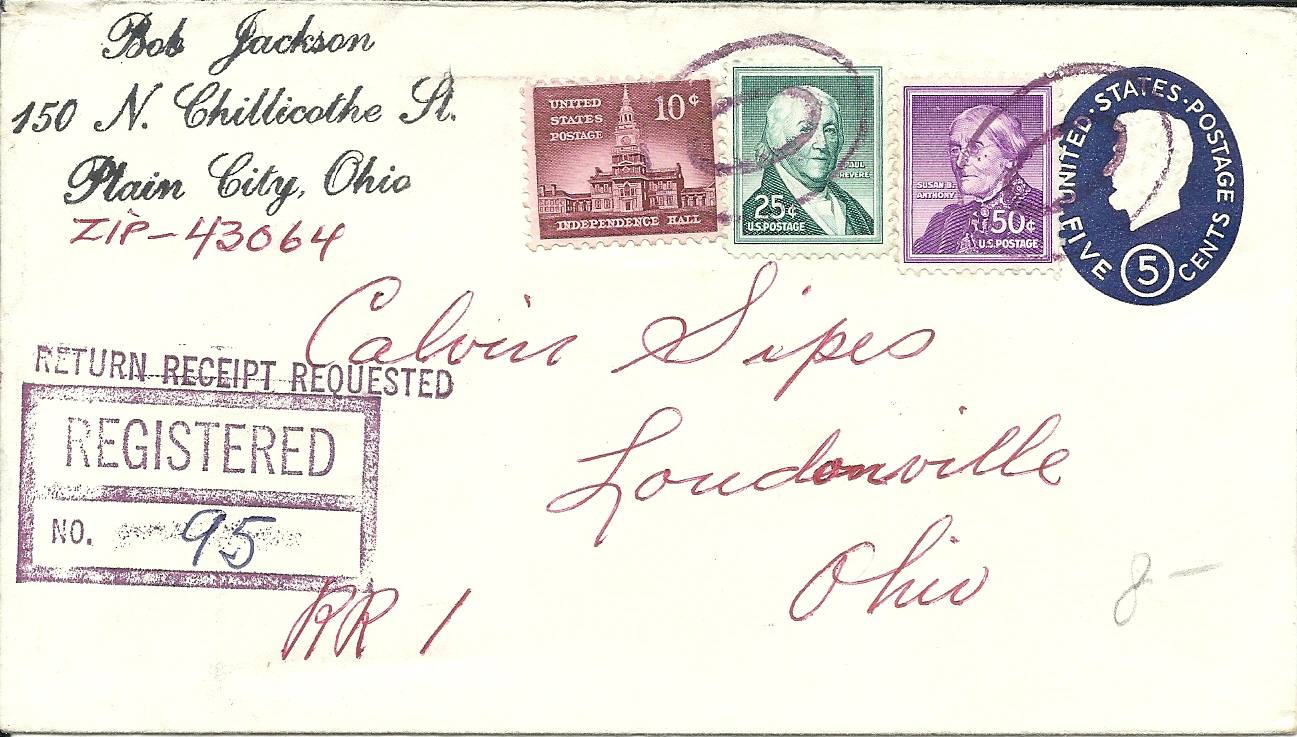 Bob Jackson
150 N. Chillicothe St.
Plain City, Ohio
ZIP-43064
UNITED
STATES
POSTAGE
10¢
INDEPENDENCE HALL
PAUL
REVERE
25¢
U.S. POSTAGE
SUSAN B.
ANTHONY
50¢
U.S. POSTAGE
UNITED·STATES·POSTAGE
FIVE 5 CENTS
Calvin Sipes
Loudonville
Ohio
RETURN RECEIPT REQUESTED
REGISTERED
NO. 95
RR 1
8-